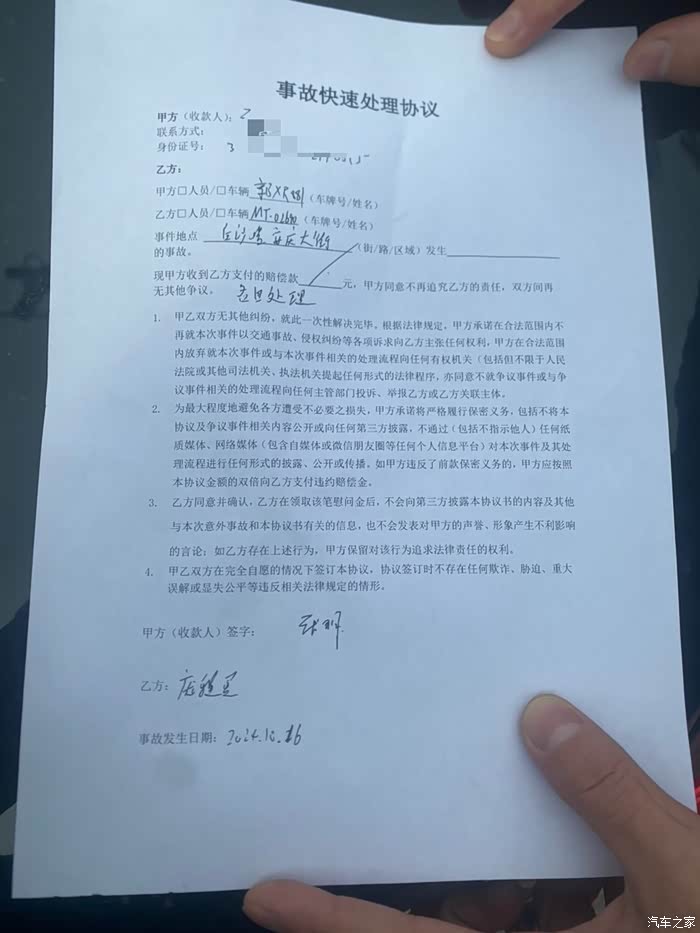 事故快速处理协议
甲方（收款人）：
联系方式：
身份证号： 3
乙方：
甲方□人员/□车辆（车牌号/姓名）
乙方□人员/□车辆 MT-（车牌号/姓名）
事件地点 安庆大街（街/路/区域）发生
的事故。
现甲方收到乙方支付的赔偿款 元，甲方同意不再追究乙方的责任，双方间再
无其他争议。 处理
1. 甲乙双方无其他纠纷，就此一次性解决完毕。根据法律规定，甲方承诺在合法范围内不
再就本次事件以交通事故、侵权纠纷等各项诉求向乙方主张任何权利，甲方在合法范围
内放弃就本次事件或与本次事件相关的处理流程向任何有权机关（包括但不限于人民
法院或其他司法机关、执法机关提起任何形式的法律程序，亦同意不就争议事件或与争
议事件相关的处理流程向任何主管部门投诉、举报乙方或乙方关联主体。
2. 为最大程度地避免各方遭受不必要之损失，甲方承诺将严格履行保密义务，包括不将本
协议及争议事件相关内容公开或向任何第三方披露，不通过（包括不指示他人）任何纸
质媒体、网络媒体（包含自媒体或微信朋友圈等任何个人信息平台）对本次事件及其处
理流程进行任何形式的披露、公开或传播。如甲方违反了前款保密义务的，甲方应按照
本协议金额的双倍向乙方支付违约赔偿金。
3. 乙方同意并确认，乙方在领取该笔慰问金后，不会向第三方披露本协议书的内容及其他
与本次意外事故和本协议书有关的信息，也不会发表对甲方的声誉、形象产生不利影响
的言论；如乙方存在上述行为，甲方保留对该行为追求法律责任的权利。
4. 甲乙双方在完全自愿的情况下签订本协议，协议签订时不存在任何欺诈、胁迫、重大
误解或显失公平等违反相关法律规定的情形。
甲方（收款人）签字：
乙方：
事故发生日期：2024.10.
汽车之家